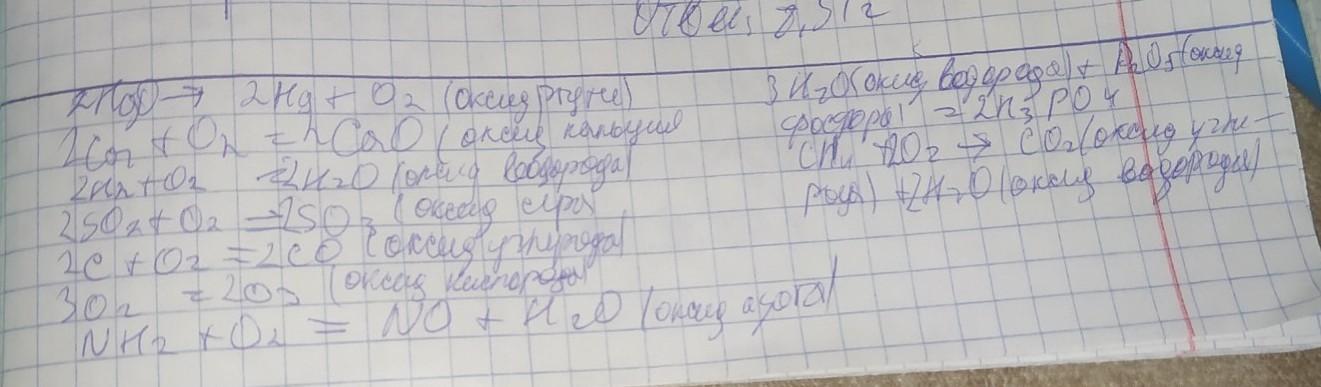 Ответ: 2,51г
2HgO → 2Hg + O₂ (оксид ртути)
2Ca + O₂ = 2CaO (оксид кальция
2H₂ + O₂ = 2H₂O (оксид водорода)
2SO₂ + O₂ = 2SO₃ (оксид серы
2C + O₂ = 2CO (оксид углерода)
3O₂ = 2O₃ (оксид кислорода)
NH₂ + O₂ = NO + H₂O (оксид азота)
3H₂O (оксид водорода) + P₂O₅ (оксид
фосфора) = 2H₃PO₄
CH₄ + 2O₂ → CO₂ (оксид угле-
рода) + 2H₂O (оксид водорода)